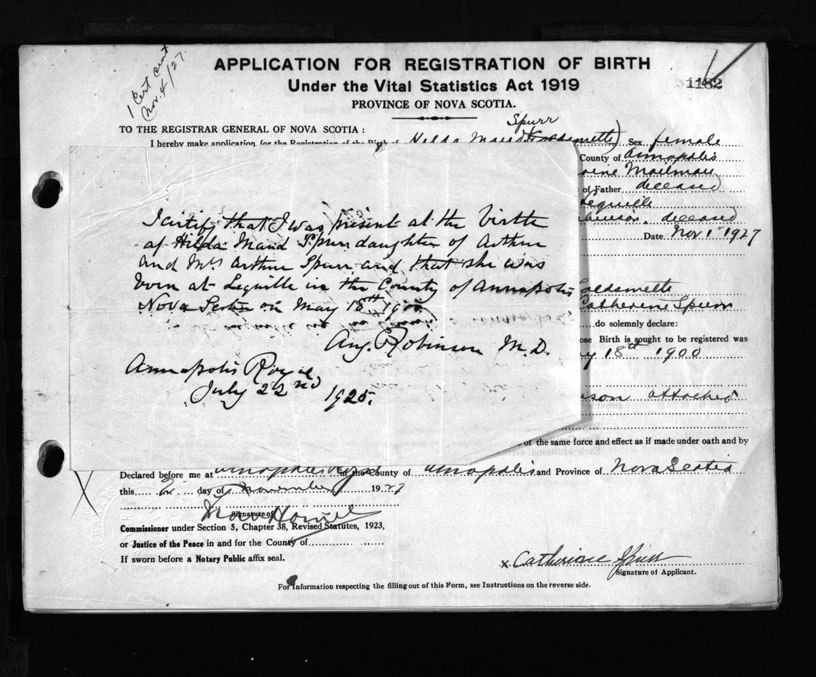 1 Cert sent
Nov. 4/27.
APPLICATION FOR REGISTRATION OF BIRTH
Under the Vital Statistics Act 1919
PROVINCE OF NOVA SCOTIA.
1182
TO THE REGISTRAR GENERAL OF NOVA SCOTIA :
Spurr
I hereby make application for the Registration of the Birth of Hilda Maud Sex female
County of Annapolis
Mailman
of Father deceased
Lequille
deceased
Date Nov 1st 1927
I certify that I was present at the birth
of Hilda Maud Spurr daughter of Arthur
and Mrs Arthur Spurr and that she was
born at Lequille in the County of Annapolis
Nova Scotia on May 18th 1900.
Aug. Robinson M.D.
Annapolis Royal
July 22nd 1925.
Catherine Spurr
do solemnly declare:
ose Birth is sought to be registered was
18th 1900
attached
of the same force and effect as if made under oath and by
Declared before me at Annapolis Royal in the County of Annapolis and Province of Nova Scotia
this day of November 1927
Signature of
Commissioner under Section 5, Chapter 38, Revised Statutes, 1923,
or Justice of the Peace in and for the County of
If sworn before a Notary Public affix seal.
x Catherine Spurr
Signature of Applicant.
For Information respecting the filling out of this Form, see Instructions on the reverse side.